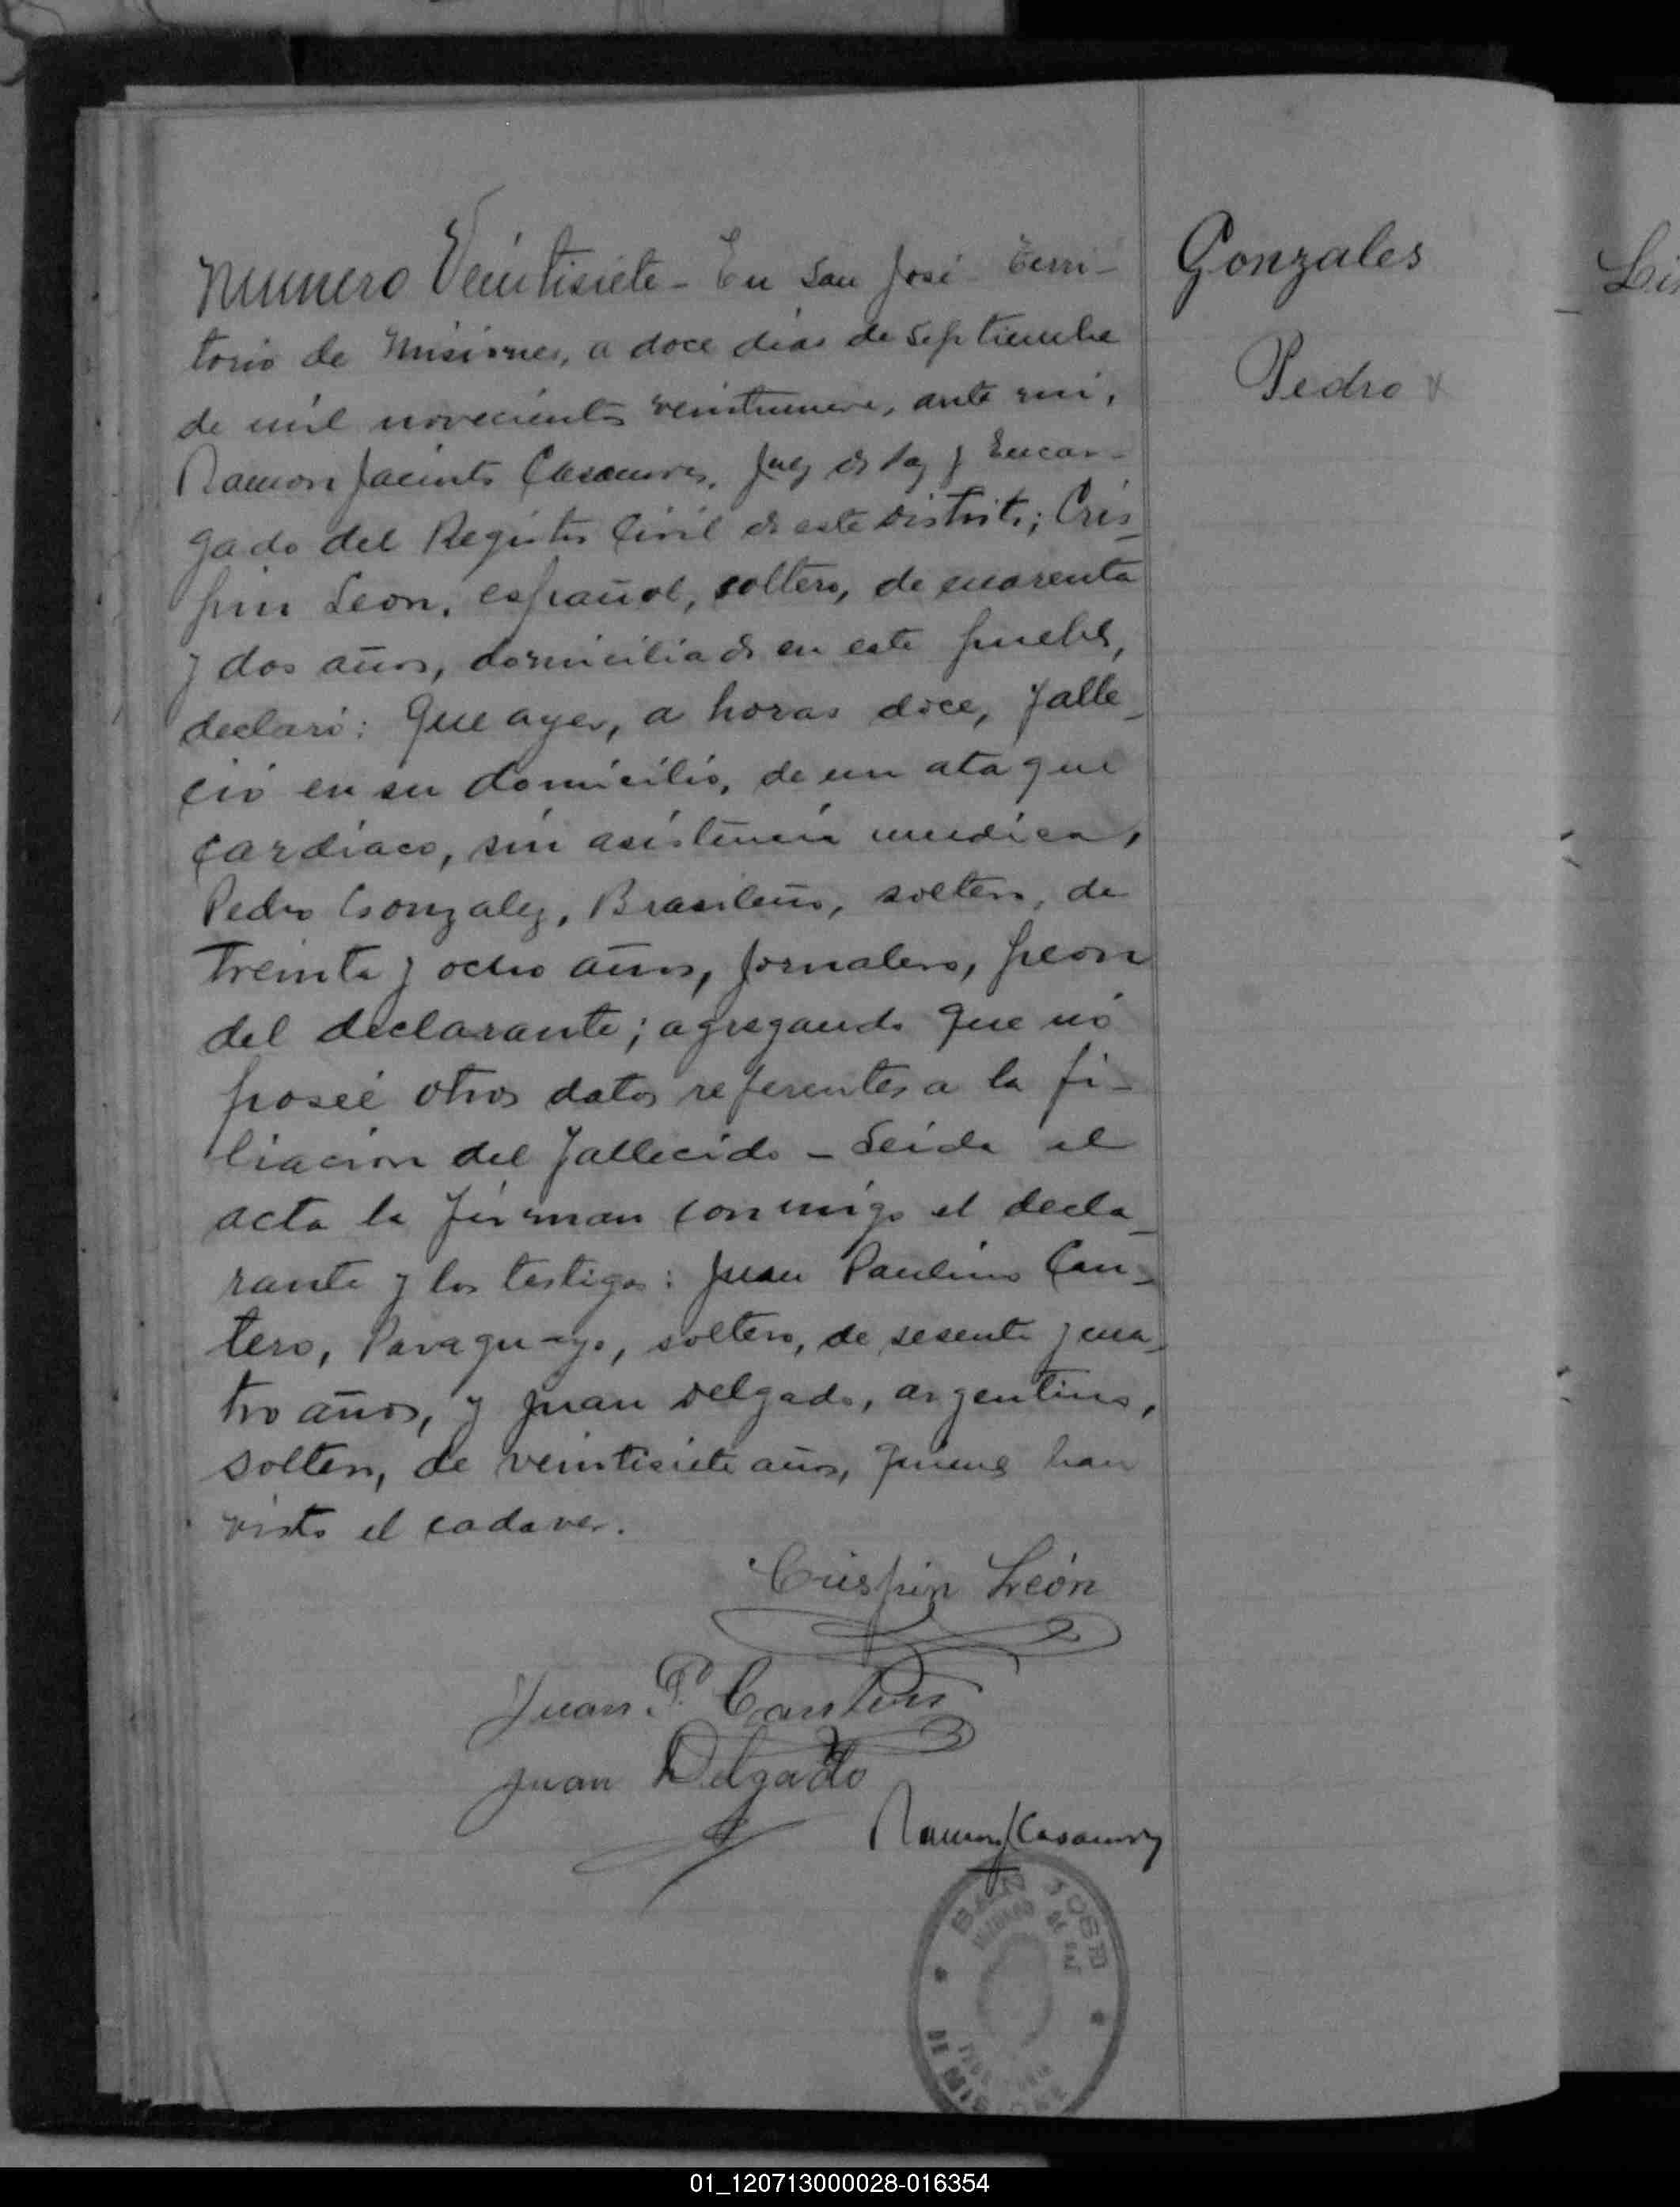 Numero Veintisiete - En San José Terri-
torio de Misiones, a doce dias de Septiembre
de mil novecientos veintinueve, ante mi,
Ramon Jacinto Casanova, Juez de Paz y Encar-
gado del Registro Civil de este Distrito; Cris-
pin Leon, español, soltero, de cuarenta
y dos años, domiciliado en este pueblo,
declaró: Que ayer, a horas doce, falle-
ció en su domicilio, de un ataque
cardiaco, sin asistencia medica,
Pedro Gonzalez, Brasileño, soltero, de
treinta y ocho años, jornalero, peon
del declarante; agregando que nó
poseé otros datos referentes a la fi-
liacion del fallecido - Leida el
acta la firman conmigo el decla-
rante y los testigos: Juan Paulino Can-
tero, Paraguayo, soltero, de sesenta y cua-
tro años, y Juan Delgado, argentino,
soltero, de veintisiete años, quienes han
visto el cadaver.
Crispin León
Juan P. Cantero
Juan Delgado
Ramon J Casanova
SAN JOSE
JUZGADO DE PAZ
Gonzales
Pedro
01_120713000028-016354